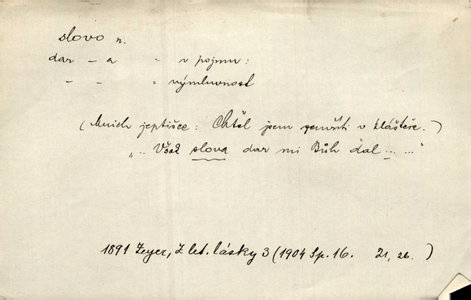 slovo n.
dar – a – v pojmu:
– – – výmluvnost
(Mnich jeptišce: Chtěl jsem zemříti v klášteře.)
„.. Však slova dar mi Bůh dal ... ..."
1891 Zeyer, Z let. lásky 3 (1904 Sp. 16. 21, 26.)